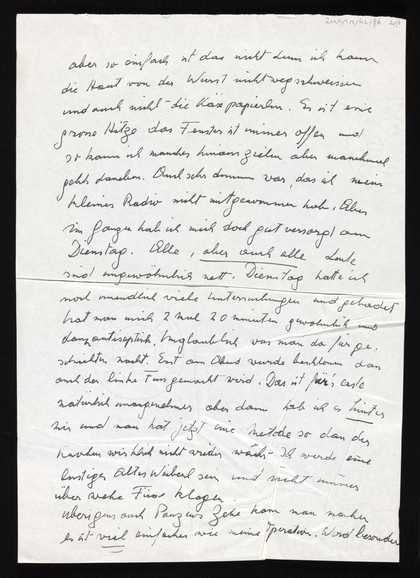 aber so einfach ist das nicht denn ich kann
die Haut von der Wurst nicht wegschmeissen
und auch nicht die Käsepapierln. Es ist eine
grosse Hitze das Fenster ist immer offen und
so kann ich manches hinausziehen aber manchmal
gehts daneben. Auch sehr dumm war, das ich mein
kleines Radio nicht mitgenommen hab. Aber
im Ganzen hab ich mich doch gut versorgt am
Dienstag. Alle, aber auch alle Leute
sind ungewöhnlich nett. Dienstag hatte ich
noch unendlich viele Untersuchungen und gebadet
hat man mich 2 mal 20 minuten gewöhnlich und
dann antiseptisch. Unglaublich was man da für ge-
schichten macht. Erst am Abend wurde beschlossen das
auch der linke Fuss gemacht wird. Das ist fürs erste
natürlich unangenehmer aber dann hab ich es hinter
mir und man hat jetzt eine metode so dan der
knochen wirklich nicht wieder wächst. Ich werde eine
lustiges Altes Weiberl sein und nicht immer
über wehe Füsse klagen.
übrigens auch Zehe kann man machen
es ist viel einfacher wie meine Operation. Word besonder